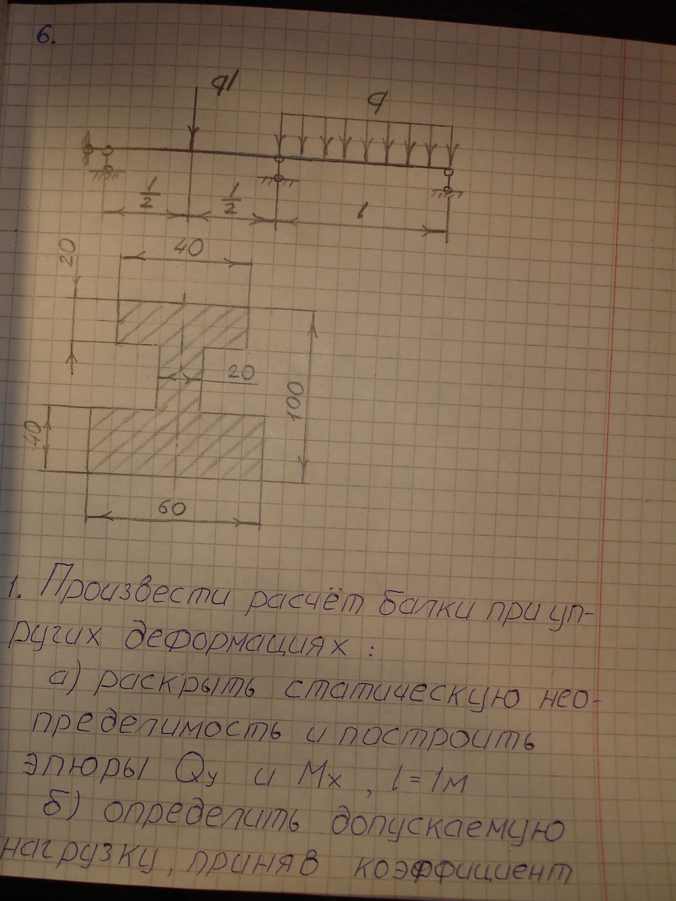 6.
ql
q
l/2
l/2
l
20
40
20
100
40
60
1. Произвести расчёт балки при уп-
ругих деформациях :
а) раскрыть статическую нео-
пределимость и построить
эпюры Qy и Mx , l = 1м
б) определить допускаемую
нагрузку, приняв коэффициент